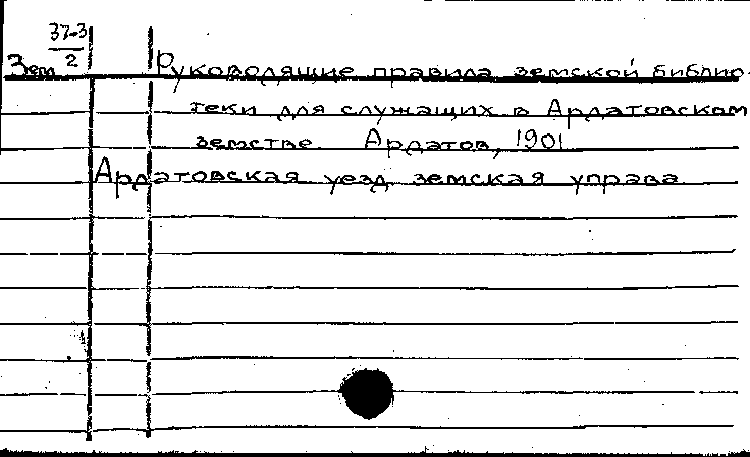 37-3
2
Зем
Руководящие правила земской библио-
теки для служащих в Ардатовском
земстве. Ардатов, 1901
Ардатовская уезд. земская управа